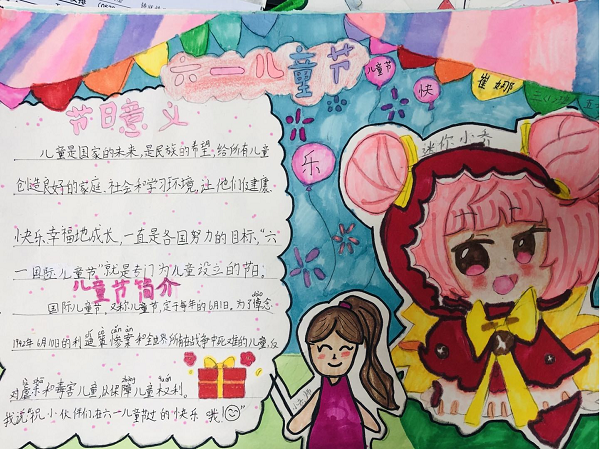 六一儿童节
儿童节
快
乐
崔娜
迷你小杏
节日意义
儿童是国家的未来,是民族的希望,给所有儿童
创造良好的家庭、社会和学习环境,让他们健康、
快乐、幸福地成长,一直是各国努力的目标,“六
一国际儿童节”就是专门为儿童设立的节日。
儿童节简介
国际儿童节,又称儿童节,定于每年的6月1日。为了悼念
1942年6月10日的利迪策惨案和全世界所有在战争中死难的儿童,反
对虐杀和毒害儿童以保障儿童权利。
我说祝小伙伴们,在六一儿童节过的快乐 哦!